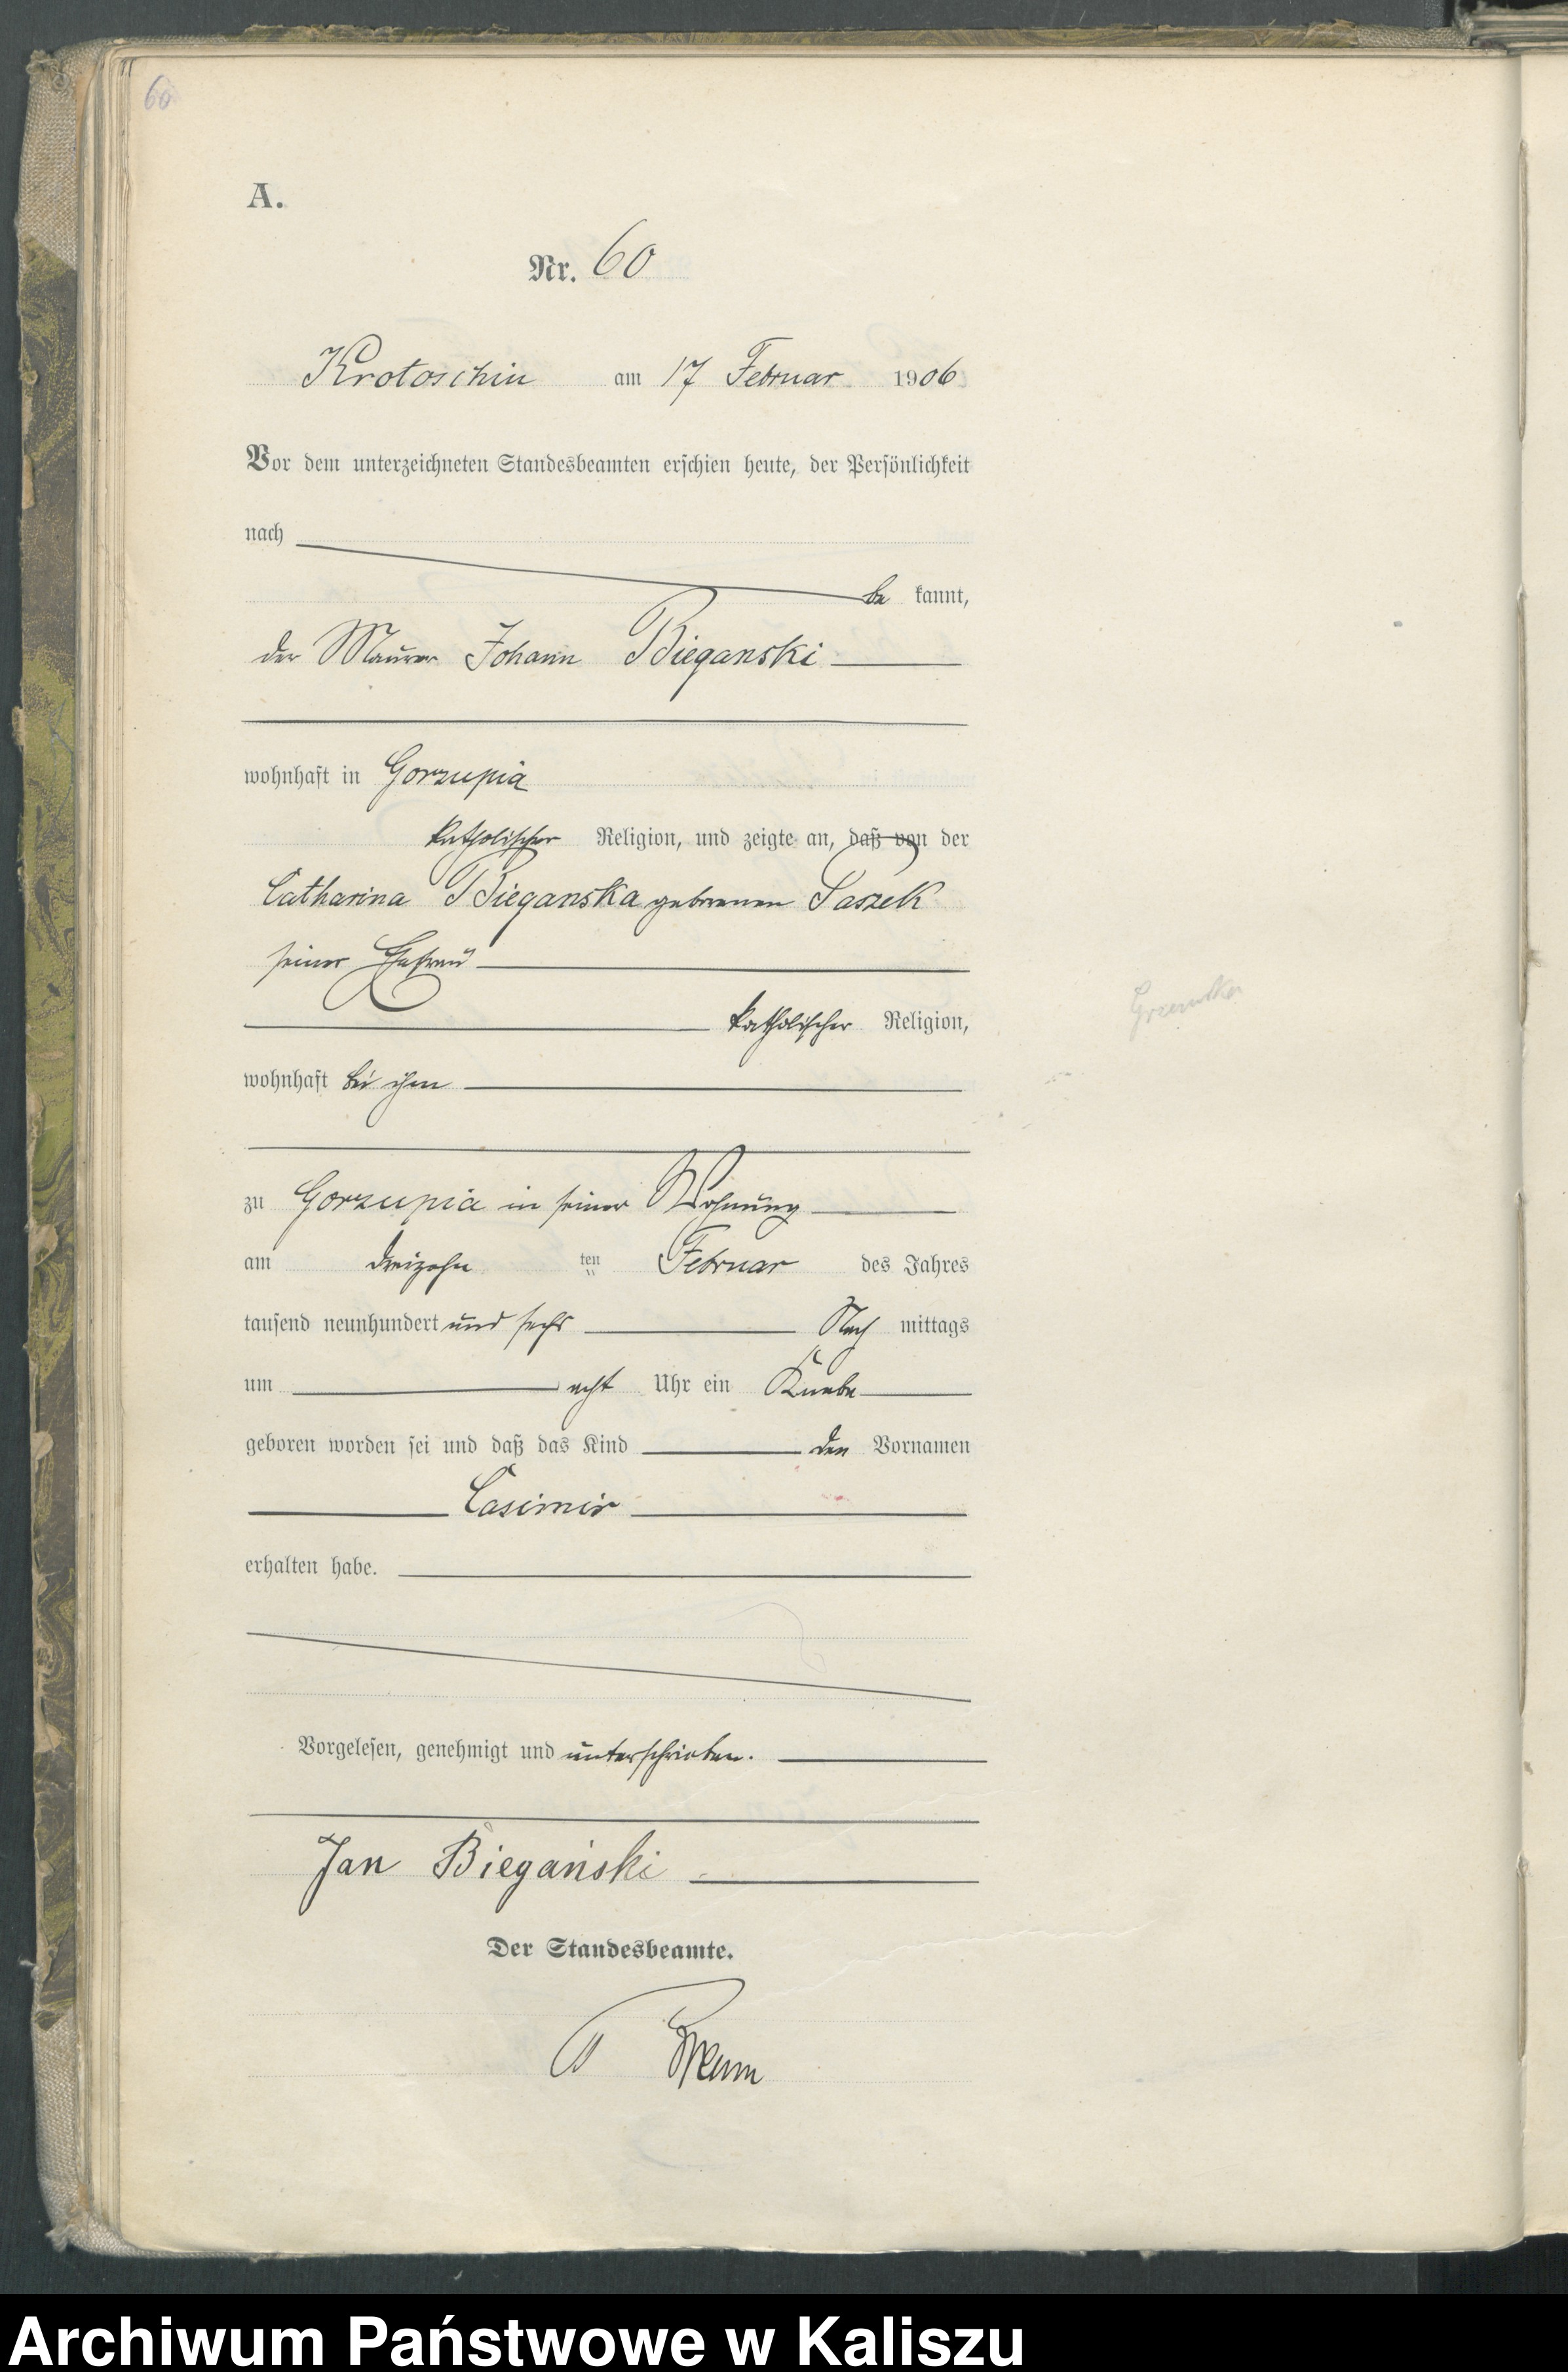 60
A.
Nr. 60
Krotoschin am 17 Februar 1906
Vor dem unterzeichneten Standesbeamten erschien heute, der Persönlichkeit
nach
be kannt,
der Maurer Johann Bieganski
wohnhaft in Gorzupia
katholischer Religion, und zeigte an, daß von der
Catharina Bieganska geborenen Paszek
seiner Ehefrau
katholischer Religion,
wohnhaft bei ihm
zu Gorzupia in seiner Wohnung
am dreizehn ten Februar des Jahres
tausend neunhundert und sechs Nach mittags
um acht Uhr ein Knabe
geboren worden sei und daß das Kind den Vornamen
Casimir
erhalten habe.
Vorgelesen, genehmigt und unterschrieben.
Jan Biegański
Der Standesbeamte.
Archiwum Państwowe w Kaliszu